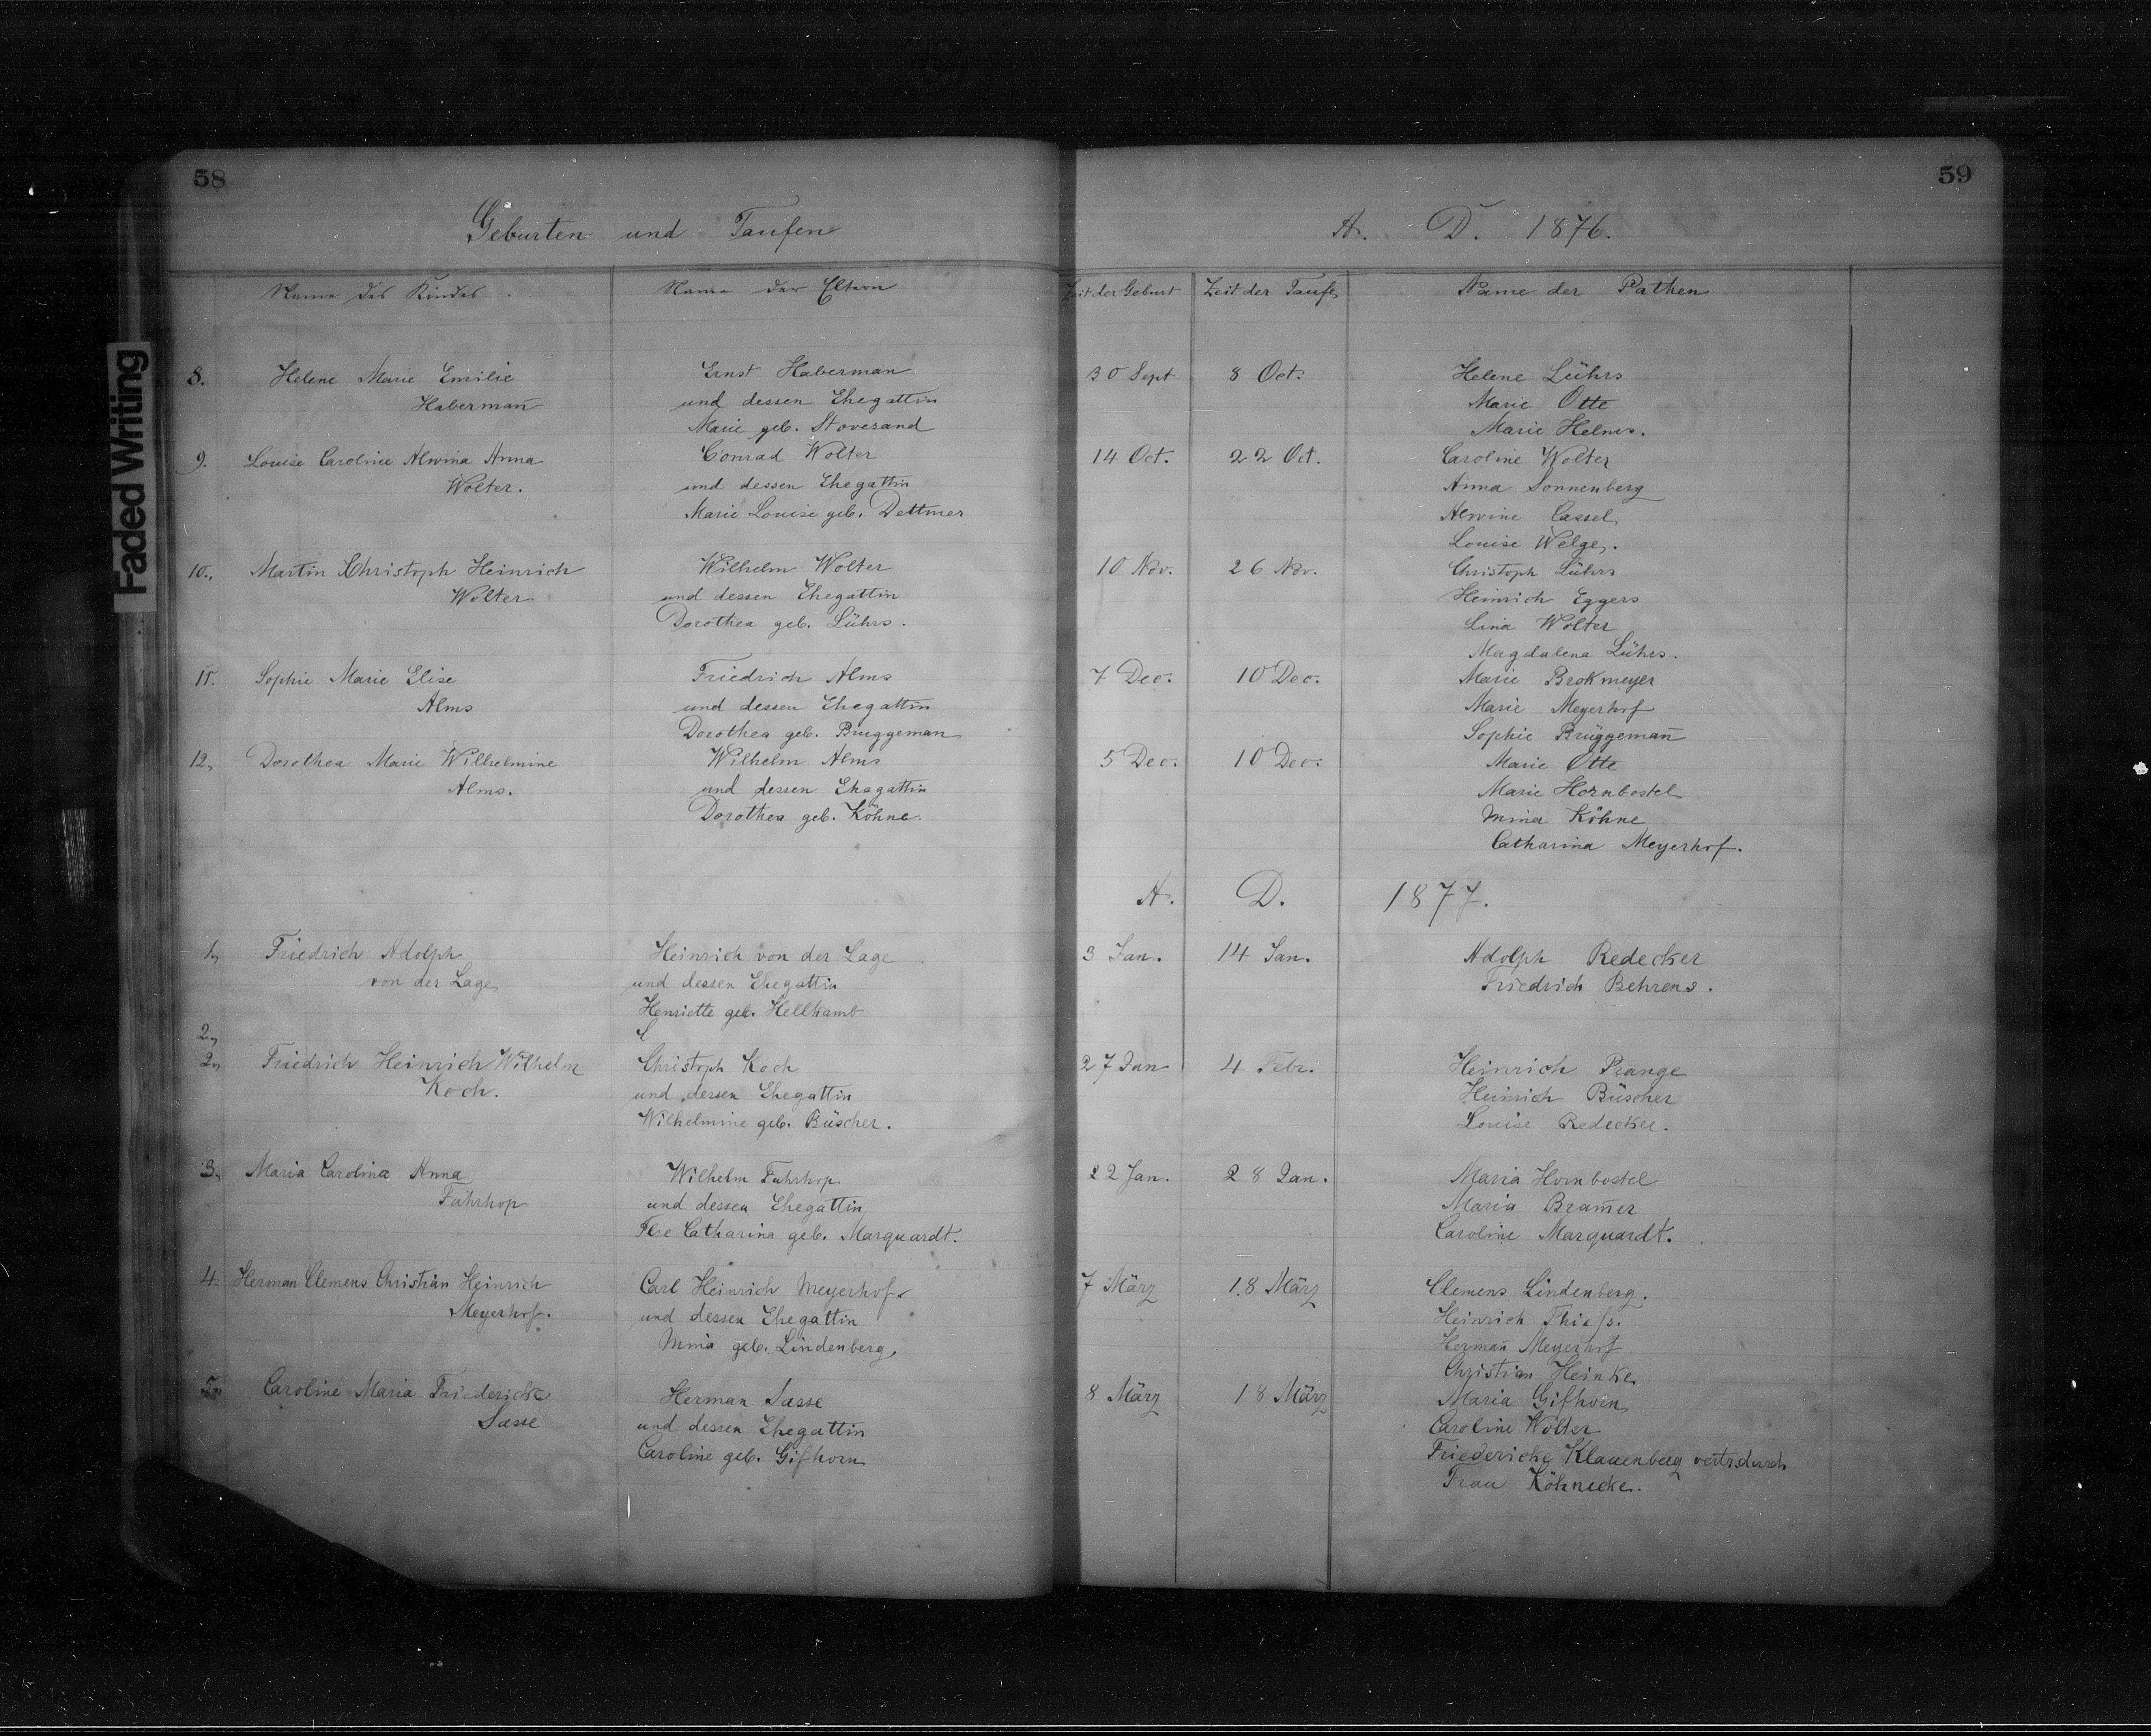 58
59
Geburten und Taufen
A. D. 1876.
Name des Kindes.
Name der Eltern
Zeit der Geburt
Zeit der Taufe
Name der Pathen
Faded Writing
8. Helene Marie Emilie
Haberman̄
Ernst Haberman
und dessen Ehegattin
Marie geb. Stovesand
30 Sept
8 Oct.
Helene Lührs
Marie Otte
Marie Helms.
9. Louise Caroline Alwina Anna
Wolter.
Conrad Wolter
und dessen Ehegattin
Marie Louise geb. Dettmer
14 Oct.
22 Oct.
Caroline Wolter
Anna Sonnenberg
Alwine Cassel
Louise Welge.
10., Martin Christoph Heinrich
Wolter
Wilhelm Wolter
und dessen Ehegattin
Dorothea geb. Lührs.
10 Nov.
26 Nov.
Christoph Lührs
Heinrich Eggers
Lina Wolter
Magdalena Lührs.
11. Sophie Marie Elise
Alms
Friedrich Alms
und dessen Ehegattin
Dorothea geb. Bruggeman
7 Dec.
10 Dec.
Marie Brokmeyer
Marie Meyerhof
Sophie Brüggeman̄
12, Dorothea Marie Wilhelmine
Alms.
Wilhelm Alms
und dessen Ehegattin
Dorothea geb. Köhne.
5 Dec.
10 Dec.
Marie Otte
Marie Hornbostel
Mina Köhne
Catharina Meyerhof.
A. D. 1877.
1, Friedrich Adolph
von der Lage
Heinrich von der Lage
und dessen Ehegattin
Henriette geb. Hellkamb
3 Jan.
14 Jan.
Adolph Redecker
Friedrich Behrens.
2,
2, Friedrich Heinrich Wilhelm
Koch.
Christoph Koch
und dessen Ehegattin
Wilhelmine geb. Büscher.
27 Jan
4 Febr.
Heinrich Prange
Heinrich Büscher
Louise Redecker.
3, Maria Carolina Anna
Fuhrhop
Wilhelm Fuhrhop
und dessen Ehegattin
Catharina geb. Marquardt.
22 Jan.
28 Jan.
Maria Hornbostel
Maria Bram̄er
Caroline Marquardt.
4. Herman Clemens Christian Heinrich
Meyerhof.
Carl Heinrich Meyerhof
und dessen Ehegattin
Mina geb. Lindenberg,
7 März
18 März
Clemens Lindenberg.
Heinrich Thieß.
Herman̄ Meyerhof
Christian Heinke
5, Caroline Maria Friedericke
Sasse
Herman Sasse
und dessen Ehegattin
Caroline geb. Gifhorn
8 März
18 März
Maria Gifhorn
Caroline Wolter
Friedericke Klauenberg vertr. durch
Frau Köhnecke.